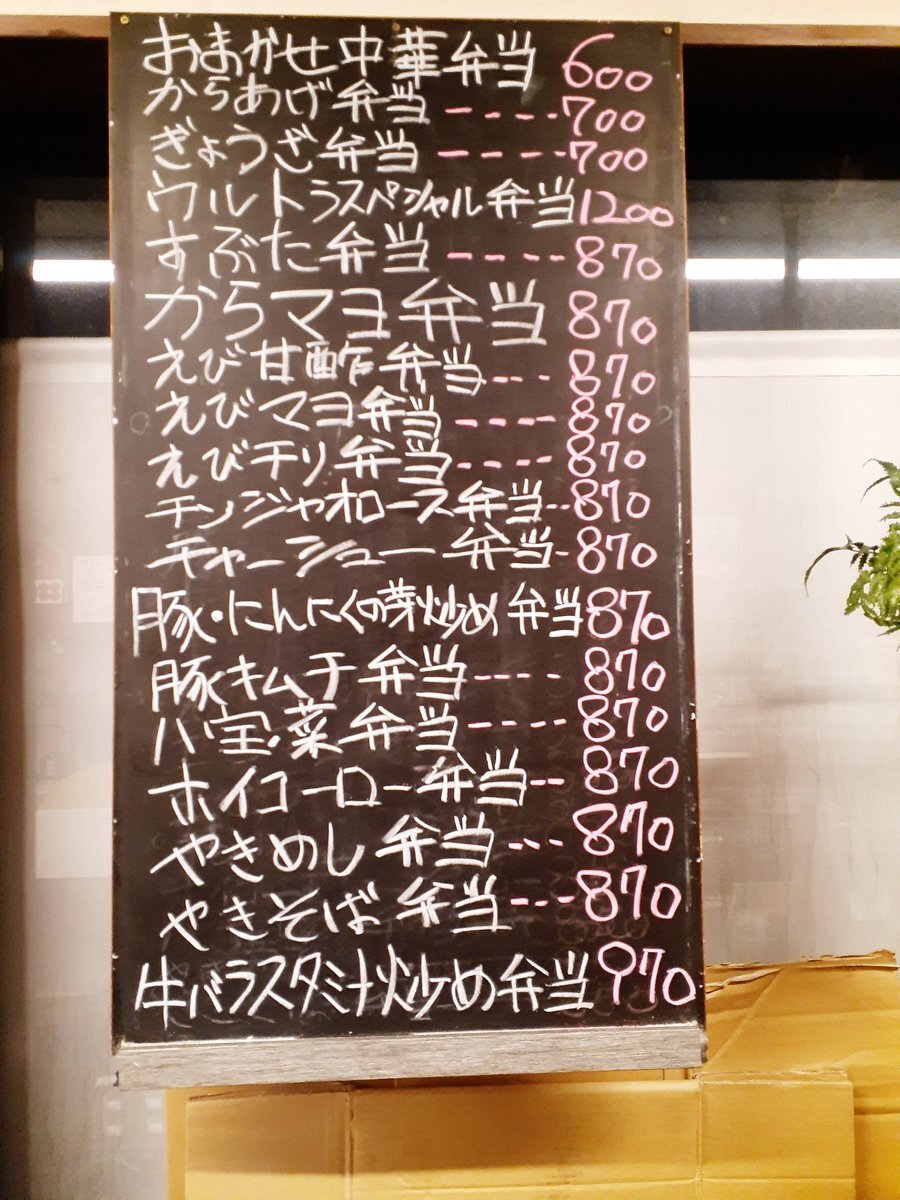 おまかせ中華弁当 600
からあげ弁当----700
ぎょうざ弁当----700
ウルトラスペシャル弁当1200
すぶた弁当----870
からマヨ弁当 870
えび甘酢弁当---870
えびマヨ弁当----870
えびチリ弁当----870
チンジャオロース弁当--870
チャーシュー弁当-870
豚・にんにくの芽炒め弁当870
豚キムチ弁当----870
八宝菜弁当----870
ホイコーロー弁当--870
やきめし弁当---870
やきそば弁当---870
牛バラスタミナ炒め弁当970